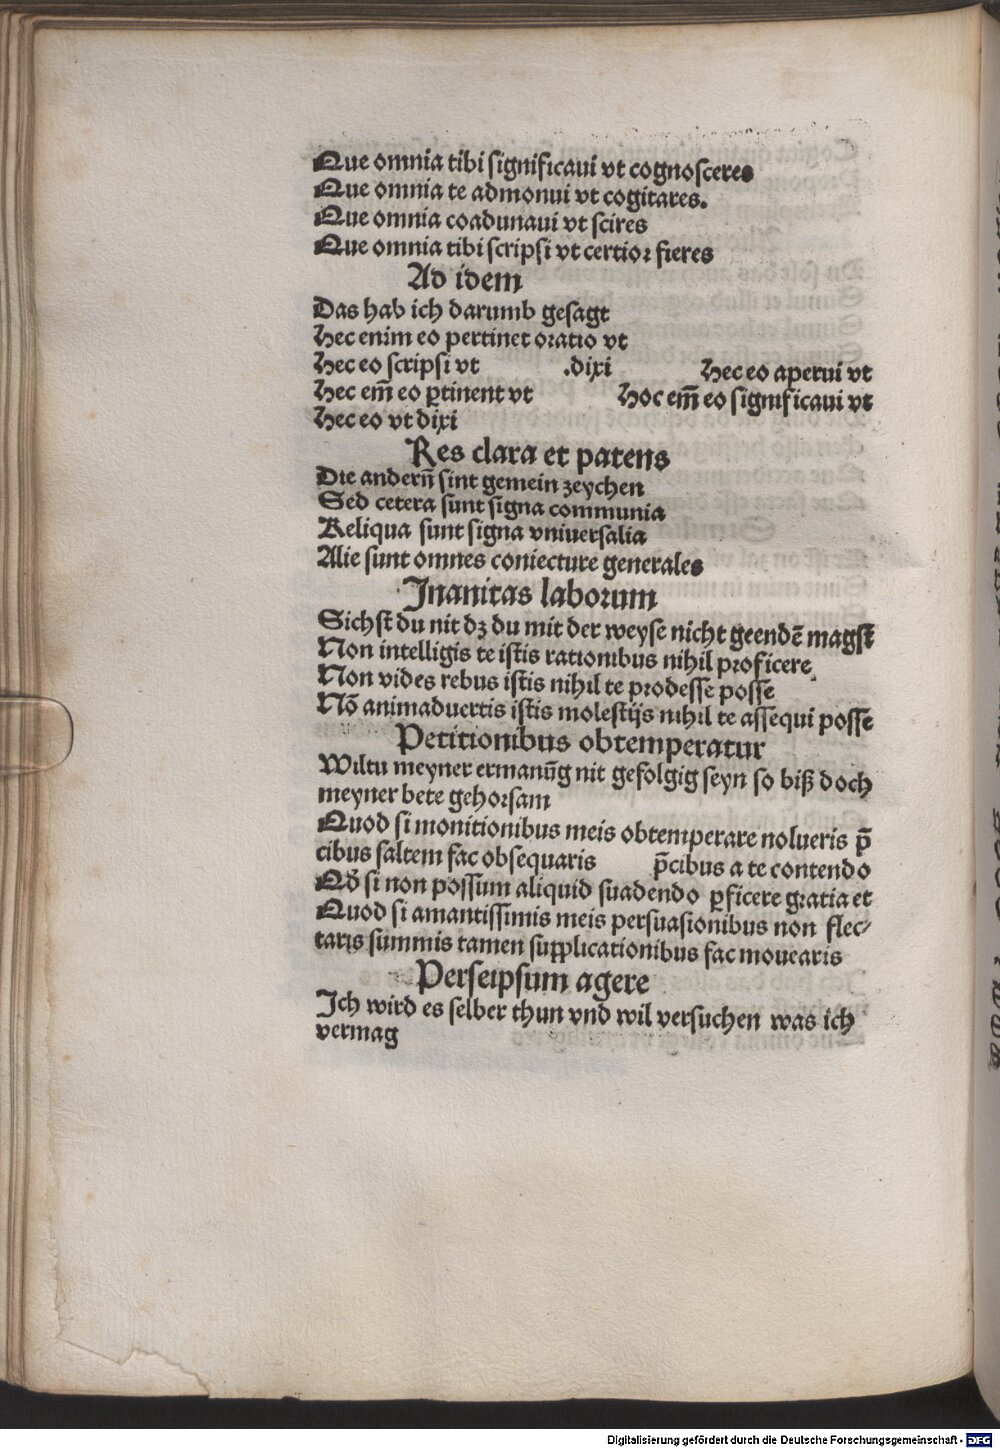 Que omnia tibi significaui vt cognosceres
Que omnia te admonui vt cogitares.
Que omnia coadunaui vt scires
Que omnia tibi scripsi vt certior fieres
Ad idem
Das hab ich darumb gesagt
Hec enim eo pertinet oratio vt
Hec eo scripsi vt .dixi Hec eo aperui vt
Hec em̄ eo ꝑtinent vt Hoc em̄ eo significaui vt
Hec eo vt dixi
Res clara et patens
Die andern̄ sint gemein zeychen
Sed cetera sunt signa communia
Reliqua sunt signa vniuersalia
Alie sunt omnes coniecture generales
Inanitas laborum
Sichst du nit dz du mit der weyse nicht geendē magst
Non intelligis te istis rationibus nihil proficere
Non vides rebus istis nihil te prodesse posse
Nō animaduertis istis molestijs nihil te assequi posse
Petitionibus obtemperatur
Wiltu meyner ermanūg nit gefolgig seyn so biß doch
meyner bete gehorsam
Quod si monitionibus meis obtemperare nolueris p̄
cibus saltem fac obsequaris p̄cibus a te contendo
Qđ si non possum aliquid suadendo ꝑficere gratia et
Quod si amantissimis meis persuasionibus non flec/
taris summis tamen supplicationibus fac mouearis
Perseipsum agere
Ich wird es selber thun vnd wil versuchen was ich
vermag
Digitalisierung gefördert durch die Deutsche Forschungsgemeinschaft - DFG